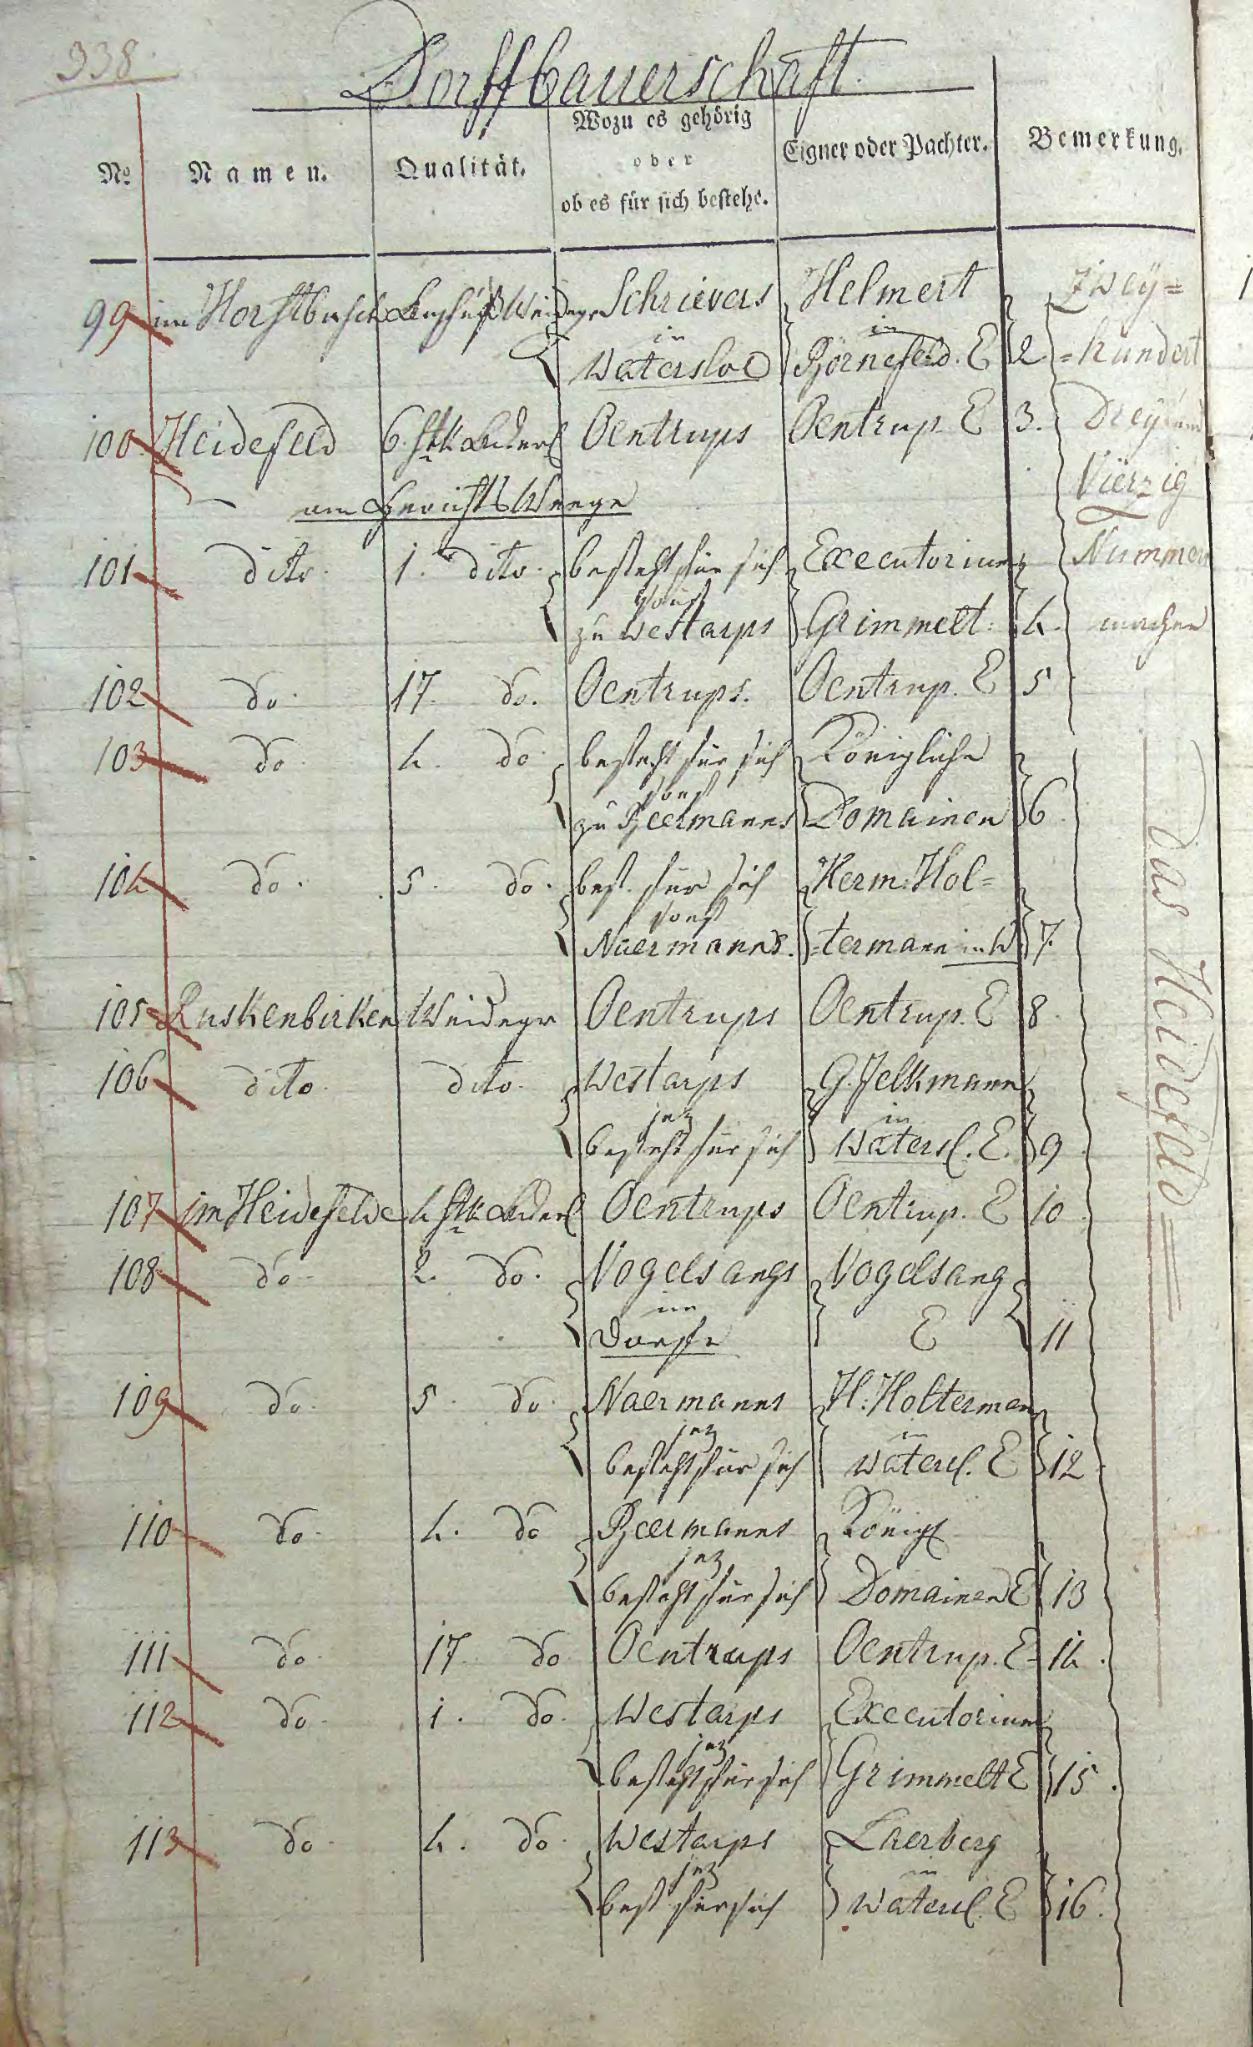 338
Dorffbauerschaft
No. Namen. Qualität. Wozu es gehörig oder ob es für sich bestehe. Eigner oder Pachter. Bemerkung.
99 im Horstbusch Weidege Schrievers Helmert Zwey=
in in
Watersloe Börnefeld. E 2. =hundert
100 Heidefeld 6. Stk Oentrups Oentrup E 3. Dreyund
am Gerichts Weege Vierzig
101 dito. 1. dito. besteht für sich Executorium Nummern
sonst
zu Westarps Grimmelt. 4. machen
102 do. 17. do. Oentrups. Oentrup. E 5
103 do. 4. do. besteht für sich Königliche
sonst
zu Beermanns Domainen 6.
104 do. 5. do. best. für sich Herm: Hol=
sonst
Naermanns. =termann in W 7.
das Heidefeld
105 Ruskenbirken Weidege Oentrups Oentrup. E 8.
106 dito. dito. Westarps G. Jelkmann
jez in
besteht für sich Watersl. E. 9.
107 im Heidefelde 4 Stk Oentrups Oentrup. E 10.
108 do. 2. do. Vogelsangs Vogelsang
im
Dorffe E 11
109 do. 5. do. Naermanns H: Holterman
jez in
besteht für sich Watersl. E 12.
110 do. 4. do Beermanns Königl
jez
besteht für sich Domainen E 13
111 do. 17. do Oentrups Oentrup. E 14.
112 do. 1. do. Westarps Executorium
jez
besteht für sich Grimmelt E 15.
113 do. 4. do. Westarps Laerberg
jez in
best für sich Watersl. E 16.